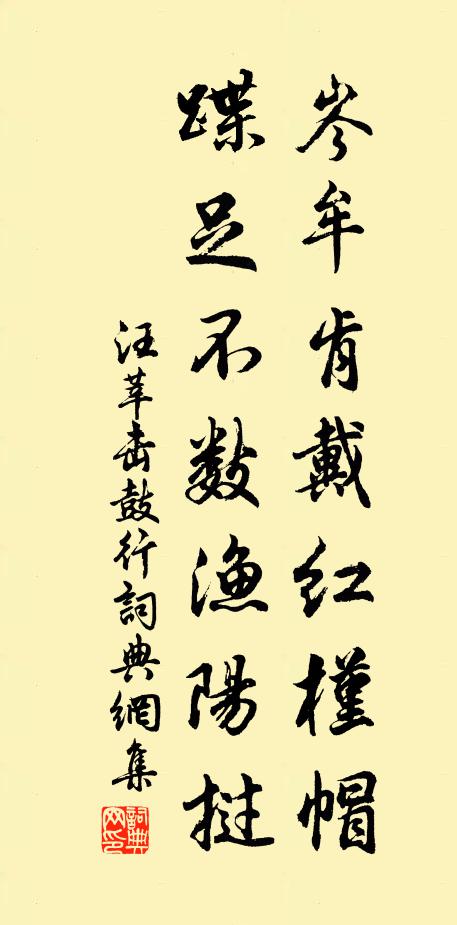 岑牟肯戴红槿帽
蹀足不数渔陽挝
汪莘击鼓行詞典網集
詞典网印